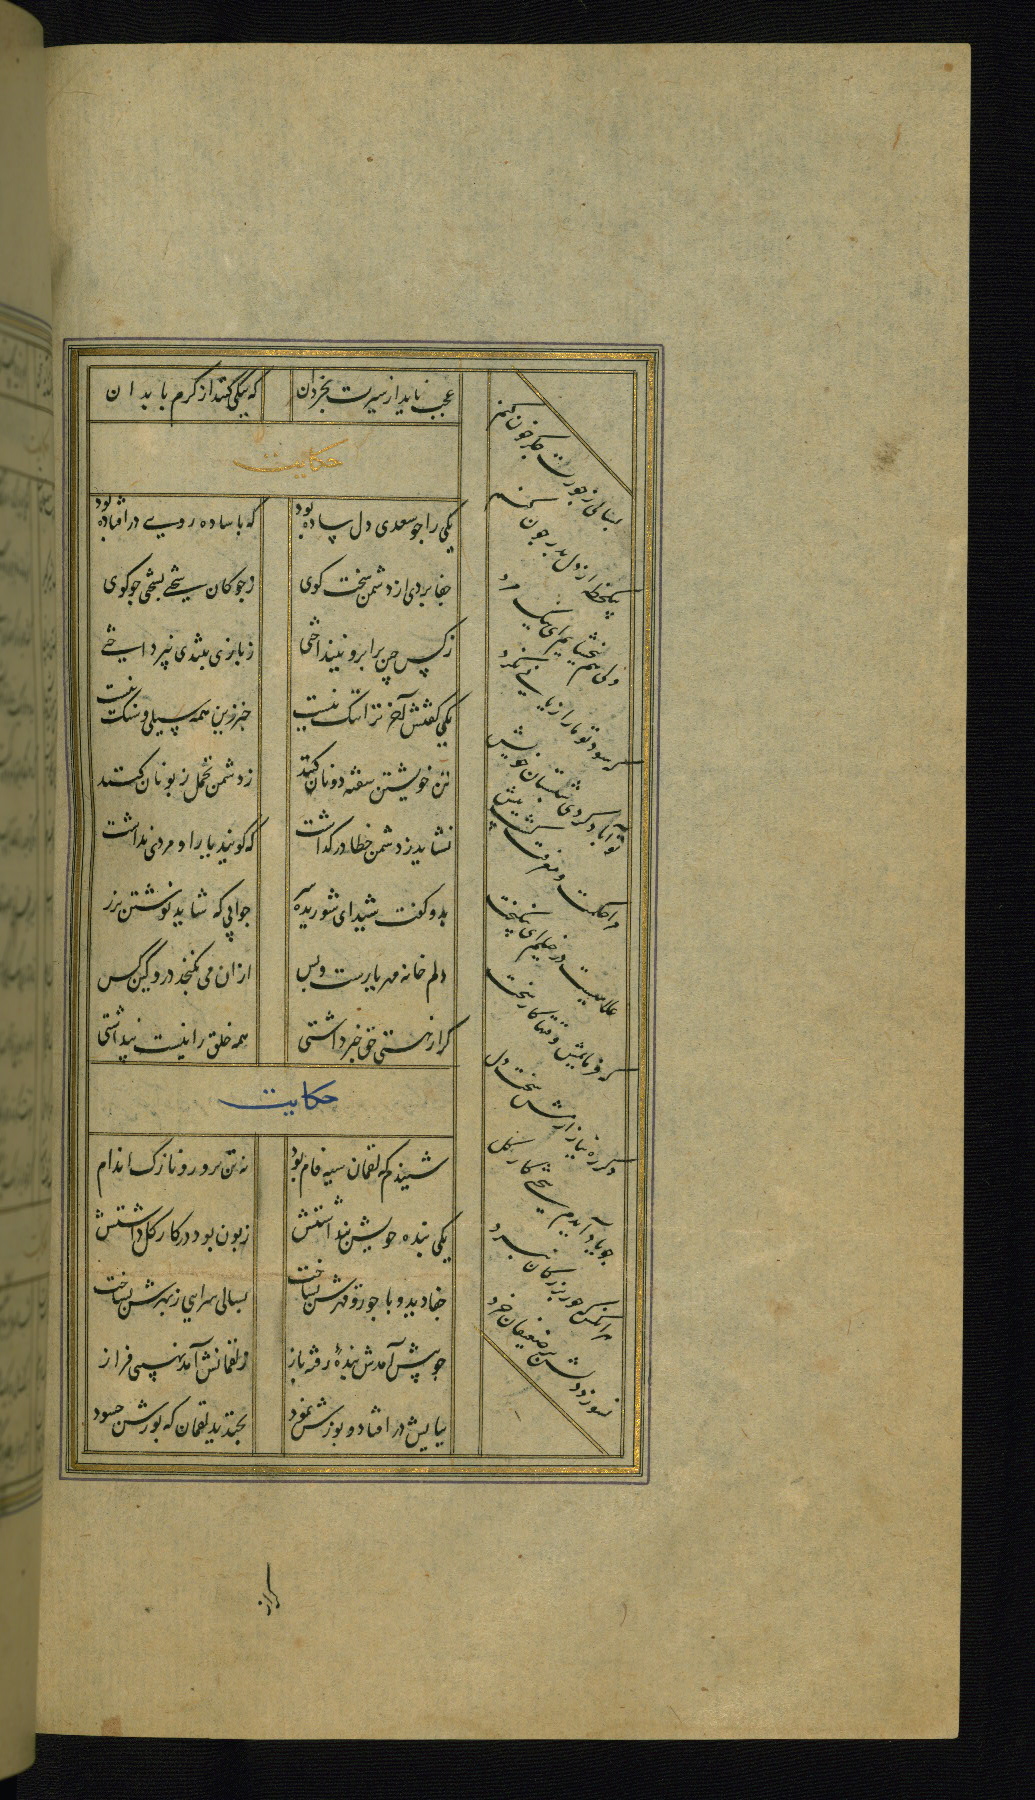 عجب ناید از سیرت بخردان
که نیکی کنند از کرم با بدان
حکایت
یکی را چو سعدی دل ساده بود
که با ساده رویی در افتاده بود
جفا بردی از دشمن سخت کوی
ز چوکان سختی بجستی چو کوی
ز کس چین بر ابرو نینداختی
ز یاری بتندی نپرداختی
یکی کفتش آخر ترا ننک نیست
خبر زین همه سیلی و سنک نیست
تن خویشتن سغبه دونان کنند
ز دشمن تحمل زبونان کنند
نشاید ز دشمن خطا در کذاشت
که کویند یارا و مردی نداشت
بدو کفت شیدای شوریده سر
جوابی که شاید نوشتن بزر
دلم خانه مهر یارست و بس
از ان می نکنجد درو کین کس
کر از هستی حق خبر داشتی
همه خلق را نیست پنداشتی
حکایت
شنیدم که لقمان سیه فام بود
نه تن پرور و نازک اندام
یکی بنده خویش پنداشتش
زبون بود در کار کل داشتش
جفا دید و با جور و قهرش بساخت
بسالی سرایی ز بهرش بساخت
چو پیش آمدش بنده رفته باز
ز لقمانش آمد نهیبی فراز
بپایش در افتاد و پوزش نمود
بخندید لقمان که پوزش چه سود
بسالی ز جورت جکر خون کنم
بیکلحظه از دل بدر چون کنم
ولی هم ببخشایم ای نیک مرد
که سود تو ما را زیانی نکرد
تو آباد کردی شبستان خویش
مرا حکمت و معرفت کشت بیش
غلامیست در خیلم ای نیکبخت
که فرمایمش وقتها کار سخت
دکر ره نیازارمش سخت دل
چو یاد آیدم سختی کار کل
هر آنکس که جور بزرکان نبرد
نسوزد دلش بر ضعیفان خرد